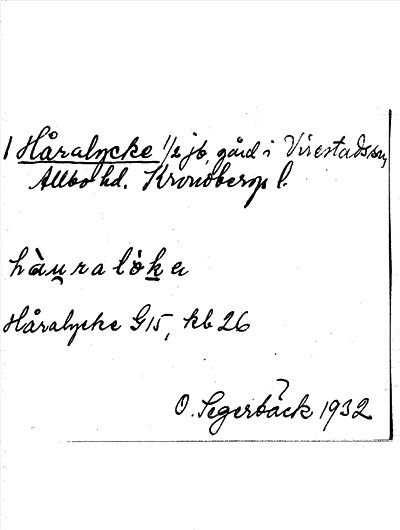 1 Håralycke 1/2 jb, gård i Virestads sn,
Allbo hd. Kronobergs l.
hàu̯ralòk̲a
Håralycke G15, kb 26
O. Segerbäck 1932